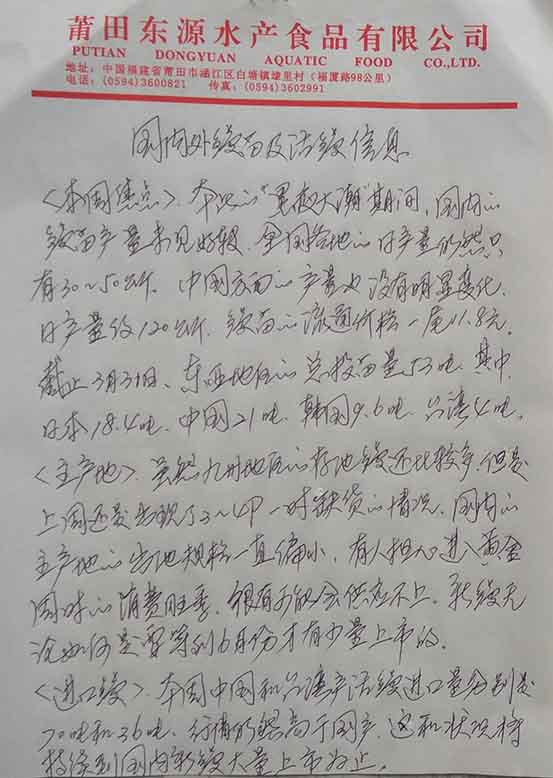 莆田东源水产食品有限公司
PUTIAN DONGYUAN AQUATIC FOOD CO.,LTD.
地址：中国福建省莆田市涵江区白塘镇埭里村（福厦路98公里）
电话：(0594)3600821 传真：(0594)3602991
国内外鳗苗及活鳗信息
〈本周焦点〉、本次的“黑夜大潮”期间，国内的
鳗苗产量未见好转，全国各地的日产量仍然只
有30～50公斤。中国方面的产量也没有明显变化、
日产量约120公斤、鳗苗的流通价格一尾11.8元。
截止3月31日、东亚地区的总投苗量53吨、其中
日本18.4吨、中国21吨、韩国9.6吨、台湾4吨。
〈主产地〉、虽然九州地区的存池鳗还比较多、但是
上周还是出现了3～4P一时缺货的情况、国内的
主产地的出池规格一直偏小，有人担心进入黄金
周时的消费旺季、很有可能会供应不上、新鳗无
论如何是要等到6月份才有少量上市的。
〈进口鳗〉、本周中国和台湾产活鳗进口量分别是
70吨和36吨、行情仍然高于国产、这种状况将
持续到国内新鳗大量上市为止。